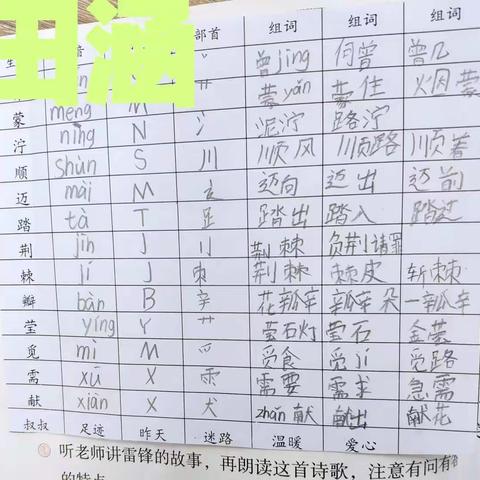 生 音 部首 组词 组词 组词
曾jīng 何曾 曾几
蒙 méng M 艹 蒙yǎn 蒙住 烟蒙
泞 nìng N 氵 泥泞 路泞
顺 shùn S 川 顺风 顺路 顺着
迈 mài M 辶 迈向 迈出 迈前
踏 tà T 足 踏出 踏入 踏过
荆 jīn J 刂 荆棘 负荆请罪
棘 jí J 朿 荆棘 棘皮 斩棘
瓣 bàn B 辛 花瓣 瓣朵 一瓣
莹 yíng Y 艹 莹石灯 莹石 金莹
觅 mì M 爫 觅食 觅jí 觅路
需 xū X 雨 需要 需求 急需
献 xiàn X 犬 zhǎn献 献出 献花
叔叔 足迹 昨天 迷路 温暖 爱心
听老师讲雷锋的故事，再朗读这首诗歌，注意有问有
的特点